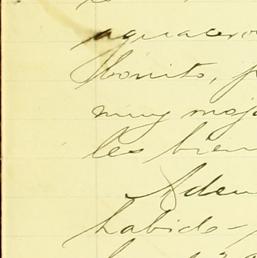 aguacero
bonito, p
muy maj
les bien
Adem
habido-